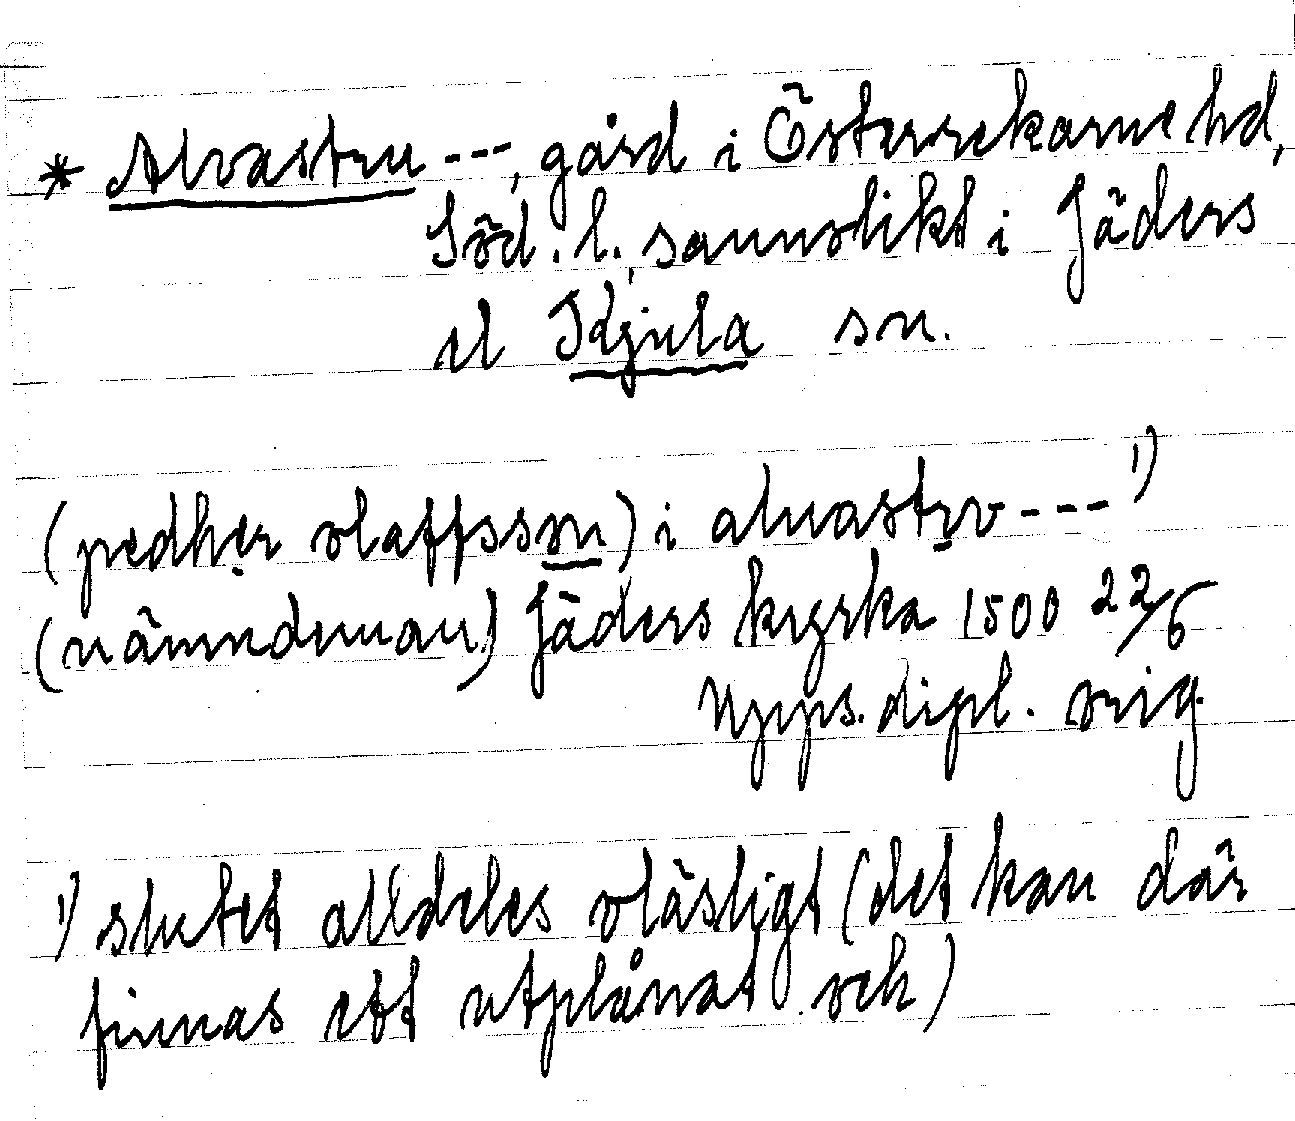 * Alvastru ---, gård i Österrekarne hd,
Söd. l., sannolikt i Jäders
el Kjula sn.
(pedher olaffsson) i aluastrv --- 1)
(nämndeman) Jäders kyrka 1500 22/6
Nyups. dipl. orig.
1) slutet alldeles oläsligt (det kan där
finnas ett utplånat och)